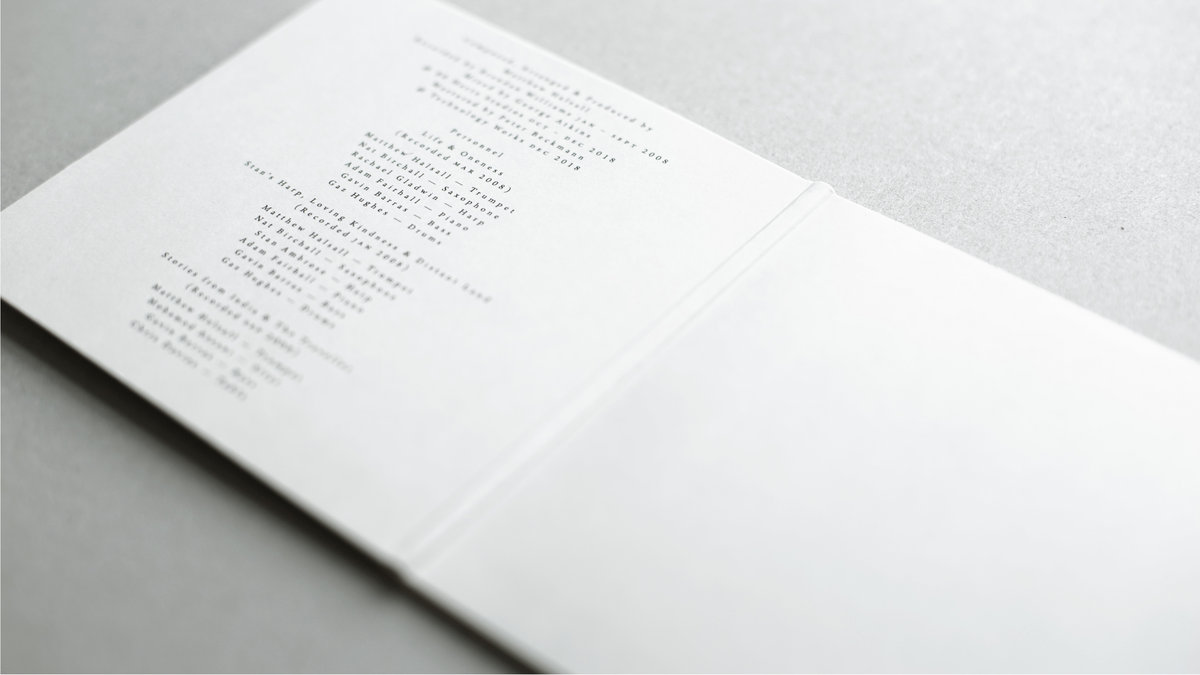 Composed, Arranged & Produced by
Matthew Halsall
Recorded by Brendan Williams JAN – SEPT 2008
Mixed by George Atkins
@ 80 Hertz Studios OCT – DEC 2018
Mastered by Peter Beckmann
@ Technology Works DEC 2018
Personnel
Life & Oneness
(Recorded MAR 2008)
Matthew Halsall — Trumpet
Nat Birchall — Saxophone
Rachael Gladwin — Harp
Adam Fairhall — Piano
Gavin Barras — Bass
Gaz Hughes — Drums
Stan's Harp, Loving Kindness & Distant Land
(Recorded JAN 2008)
Matthew Halsall — Trumpet
Nat Birchall — Saxophone
Stan Ambrose — Harp
Adam Fairhall — Piano
Gavin Barras — Bass
Gaz Hughes — Drums
Stories from India & The
(Recorded 2008)
Matthew Halsall — Trumpet
Gavin Barras — Bass
Chris Davies —